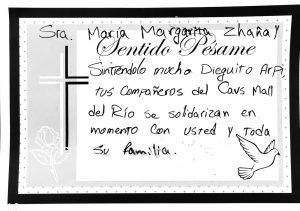 Sra. María Margarita Zhañay
Sentido Pésame
Sintiéndolo mucho Dieguito Arpi,
tus compañeros del Cavs Mall
del Río se solidarizan en
momento con usted y toda
su familia.